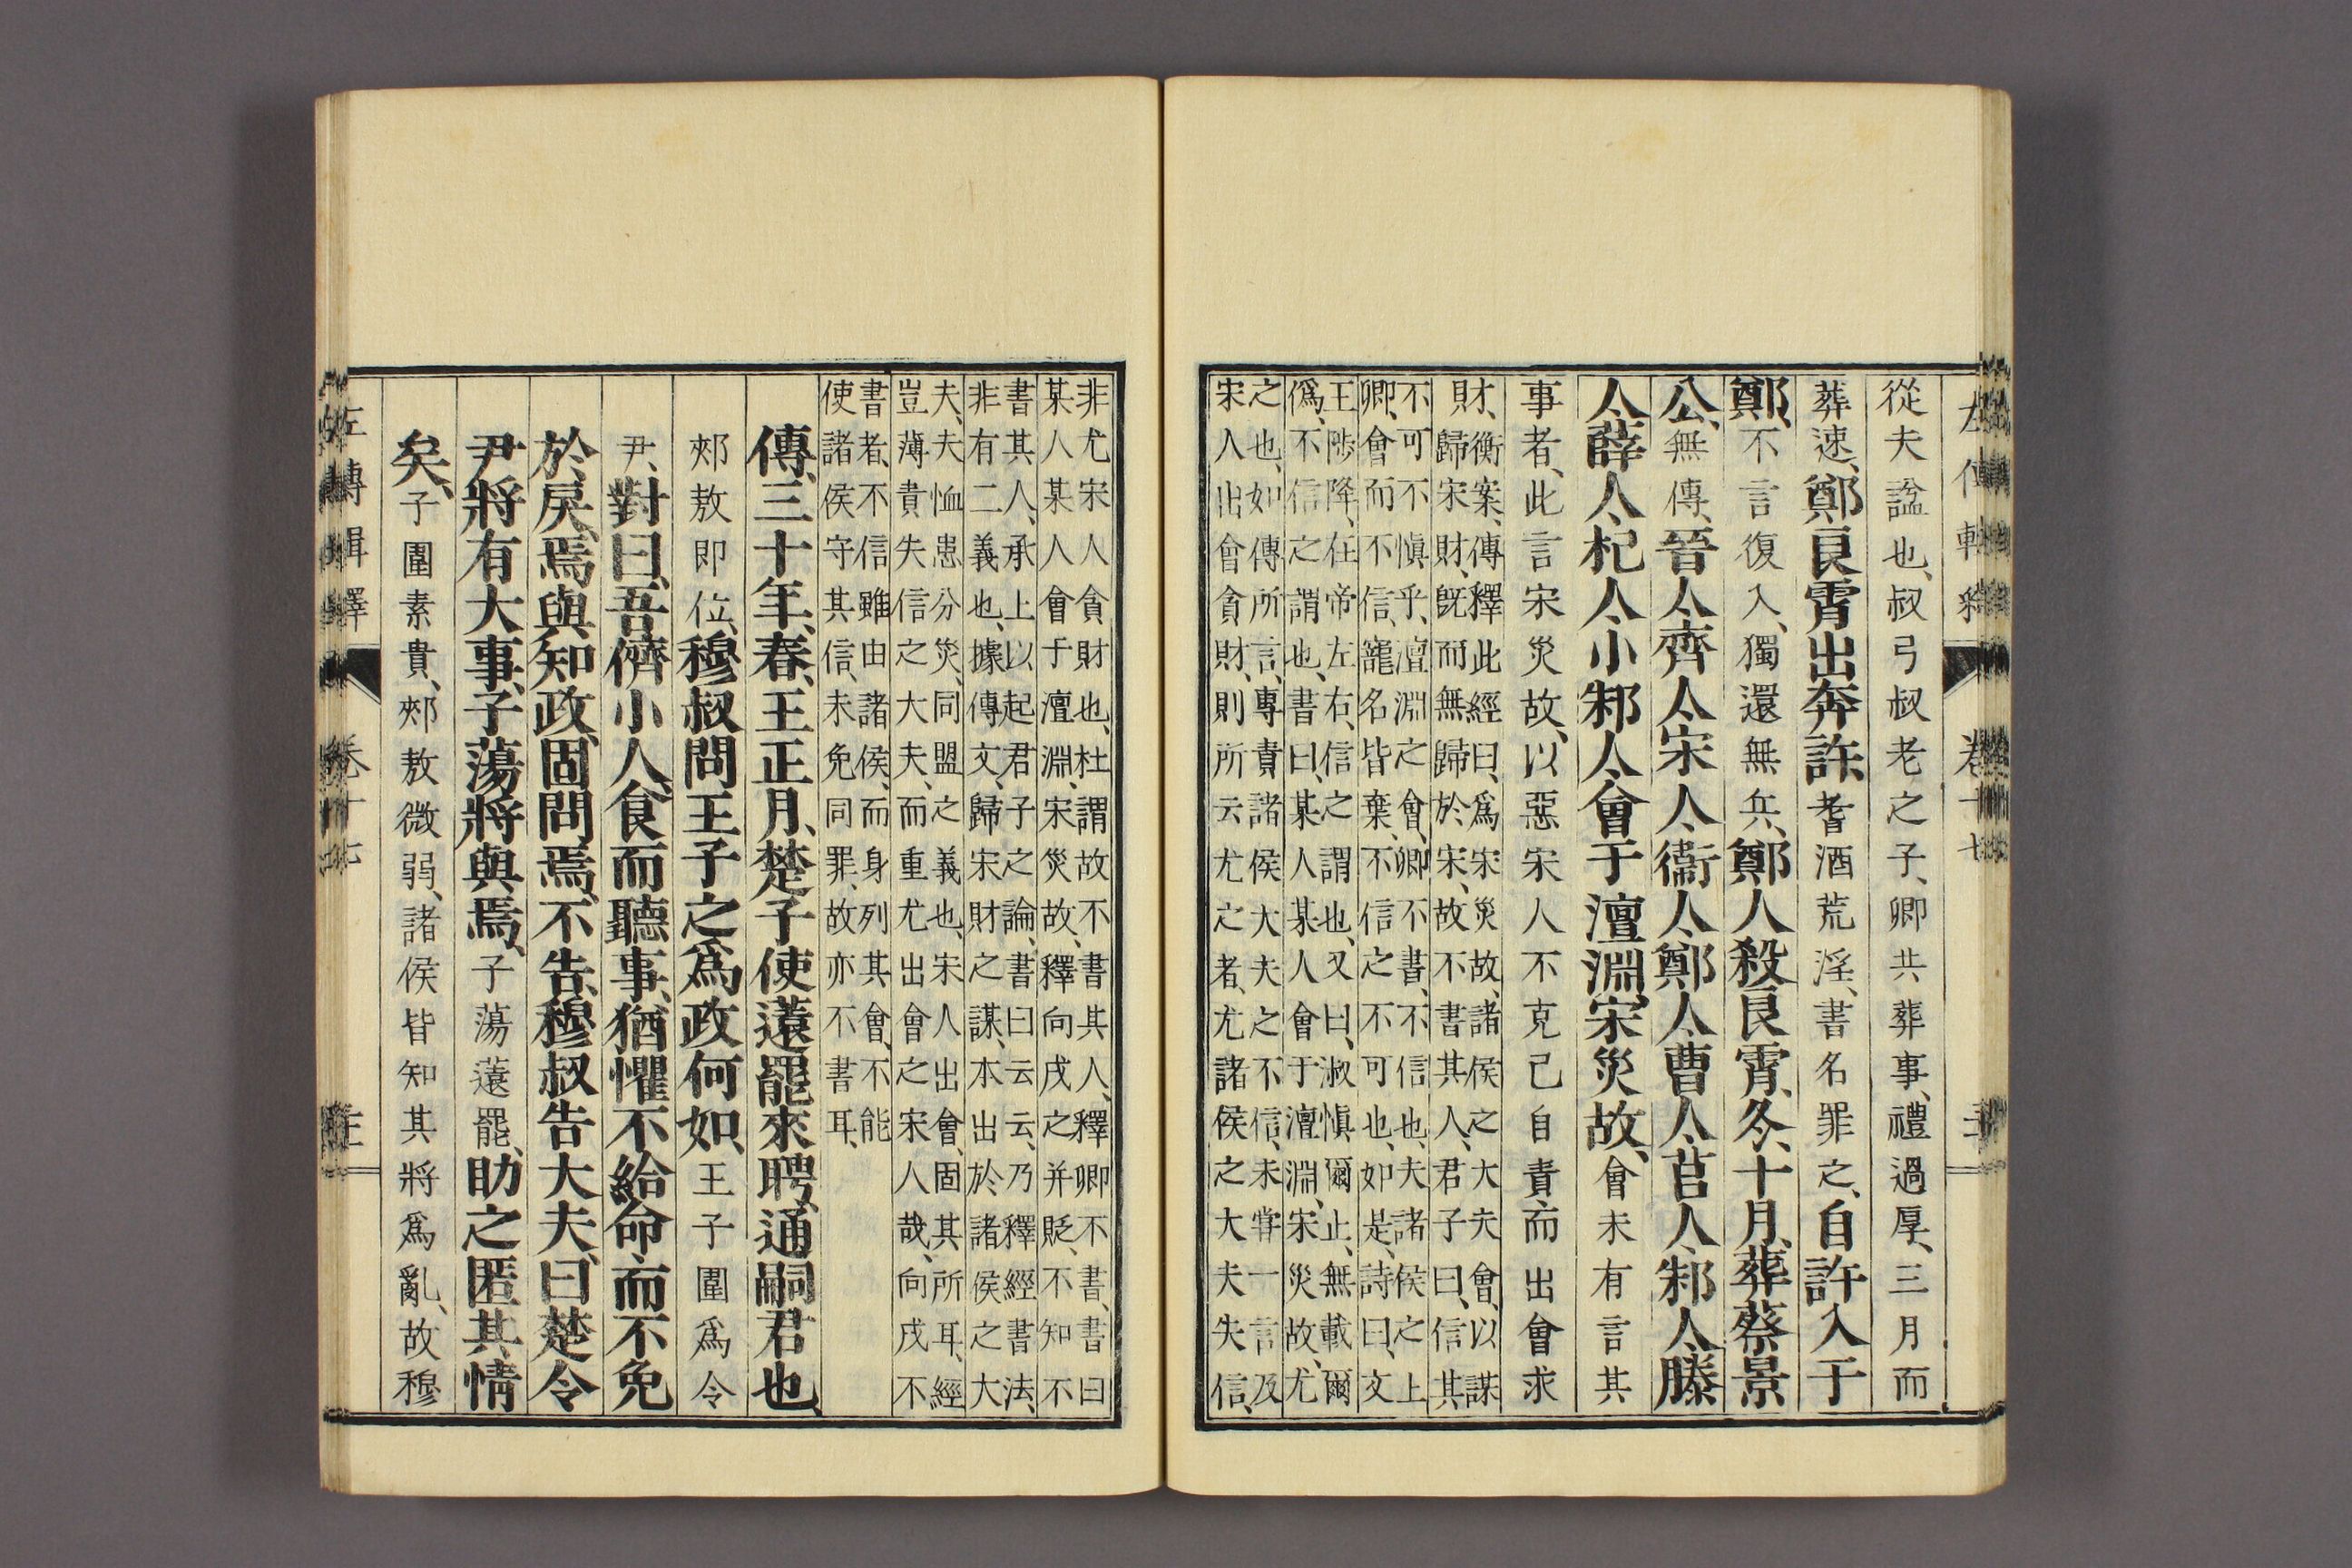 從夫諡也、叔弓叔老之子、卿共葬事、禮過厚、三月而
葬速、鄭良霄出奔許、耆酒荒淫、書名罪之、自許入于
鄭、不言復入、獨還無兵、鄭人殺良霄、冬、十月、葬蔡景
公、無傳、晉人、齊人、宋人、衞人、鄭人、曹人、莒人、邾人、滕
人、薛人、杞人、小邾人、會于澶淵、宋災故、會未有言其
事者、此言宋災故、以惡宋人不克己自責、而出會求
財、衡案、傳釋此經曰、爲宋災故、諸侯之大夫會、以謀
歸宋財、既而無歸於宋、故不書其人、君子曰、信其
不可不愼乎、澶淵之會、卿不書、不信也、夫諸侯之上
卿、會而不信、寵名皆棄、不信之不可也、如是、詩曰、文
王陟降、在帝左右、信之謂也、又曰、淑愼爾止、無載爾
僞、不信之謂也、書曰、某人某人會于澶淵、宋災故、尤
之也、如傳所言、專責諸侯大夫之不信、未嘗一言及
宋人出會貪財、則所云尤之者、尤諸侯之大夫失信、
非尤宋人貪財也、杜謂故不書其人、釋卿不書、書曰
某人某人會于澶淵、宋災故、釋向戌之并貶、不知不
書其人、承上以起君子之論、書曰云云、乃釋經書法、
非有二義也、據傳文、歸宋財之謀、本出於諸侯之大
夫、夫恤患分災、同盟之義也、宋人出會、固其所耳、經
豈薄責失信之大夫、而重尤出會之宋人哉、向戌不
書者、不信雖由諸侯、而身列其會、不能
使諸侯守其信、未免同罪、故亦不書耳、
傳、三十年、春、王正月、楚子使薳罷來聘、通嗣君也、
郟敖即位、穆叔問王子之爲政何如、王子圍爲令
尹、對曰、吾儕小人、食而聽事、猶懼不給命、而不免
於戾、焉與知政、固問焉、不告、穆叔告大夫曰、楚令
尹將有大事、子蕩將與焉、子蕩薳罷、助之匿其情
矣、子圍素貴、郟敖微弱、諸侯皆知其將爲亂、故穆